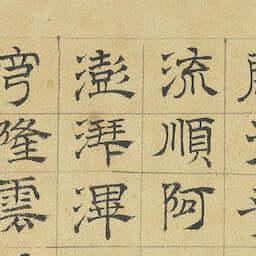 流順阿
澎湃滭
穹隆雲